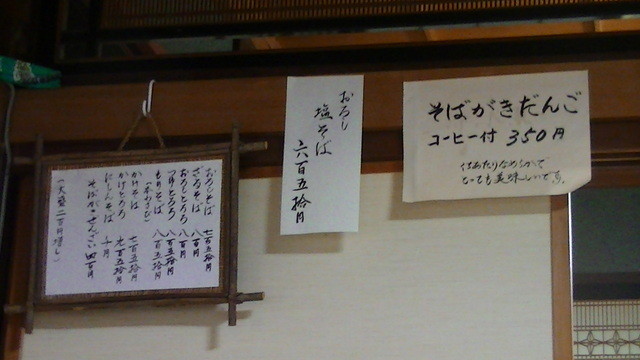 そばがきだんご
コーヒー付 350円
口あたりなめらかで
とっても美味しいです。
おろし
塩そば
六百五拾円
おろしそば 七百五拾円
ざるそば 八百円
おろしとろろ 八百円
つけとろろ 八百五拾円
もりそば 八百五拾円
(本わさび)
かけそば 七百五拾円
かけとろろ 九百五拾円
にしんそば 千円
そばがきぜんざい 四百円
(大盛二百円増し)